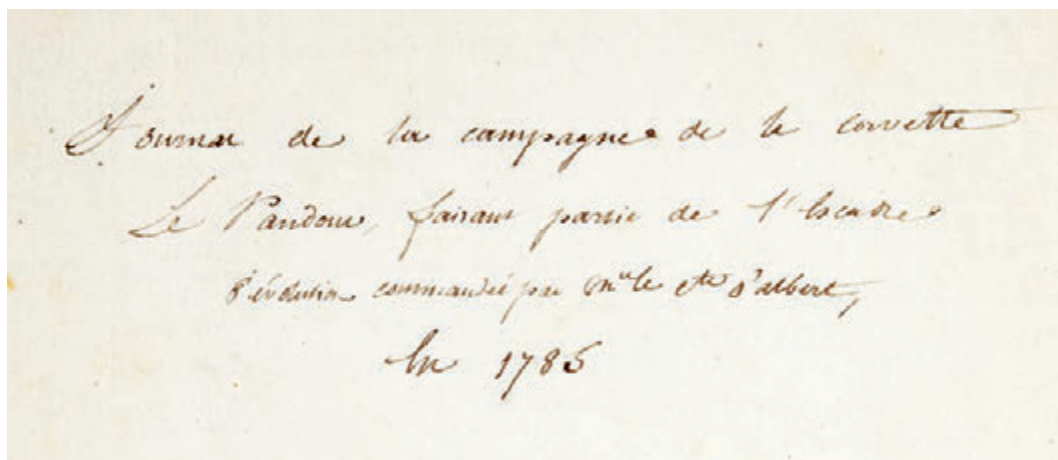 Journal de la campagne de la corvette
Le Pandour, faisant partie de l'Escadre
d'évolution commandée par Mr. le cte d'albert,
En 1785